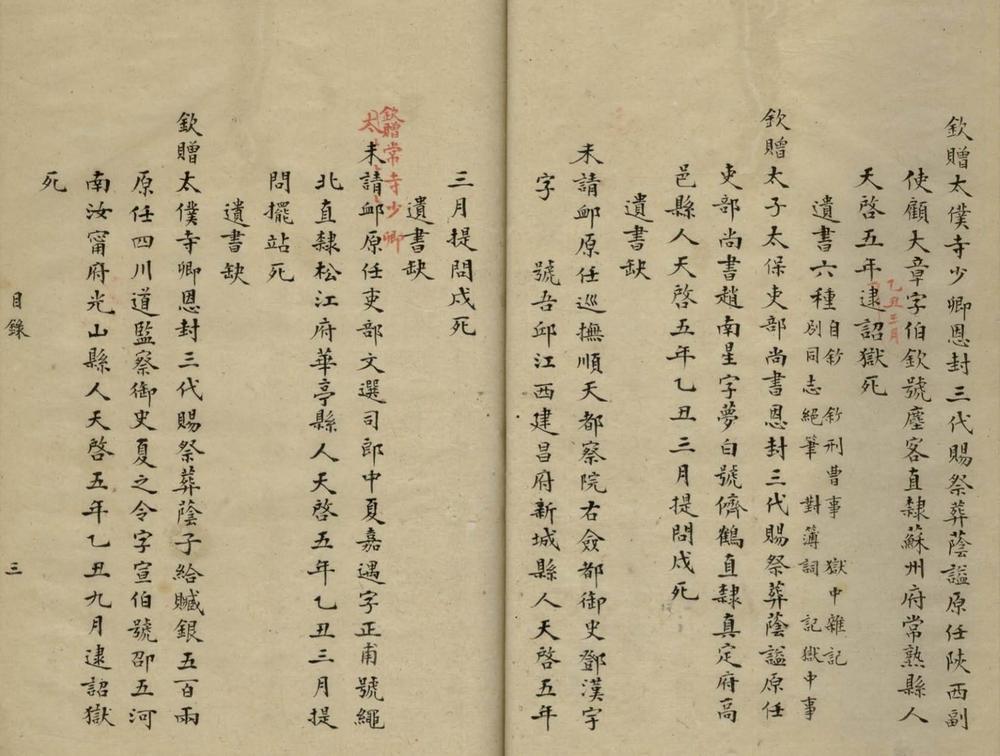 欽贈太僕寺少卿恩封三代賜祭葬蔭謚原任陝西副
使顧大章字伯欽號塵客直隸蘇州府常熟縣人
乙丑三月
天啓五年逮詔獄死
遺書六種
自敘　敘刑曹事　獄中雜記
別同志絕筆　對簿詞　記獄中事
欽贈太子太保吏部尚書恩封三代賜祭葬蔭謚原任
吏部尚書趙南星字夢白號儕鶴直隸真定府高
邑縣人天啓五年乙丑三月提問戍死
遺書缺
未請卹原任巡撫順天都察院右僉都御史鄧漢字
字　號吾邱江西建昌府新城縣人天啓五年
三月提問戍死
遺書缺
欽贈太常寺少卿
未請卹原任吏部文選司郎中夏嘉遇字正甫號繩
北直隸松江府華亭縣人天啓五年乙丑三月提
問擺站死
遺書缺
欽贈太僕寺卿恩封三代賜祭葬蔭子給贓銀五百兩
原任四川道監察御史夏之令字宣伯號邵五河
南汝甯府光山縣人天啓五年乙丑九月逮詔獄
死
目錄
三